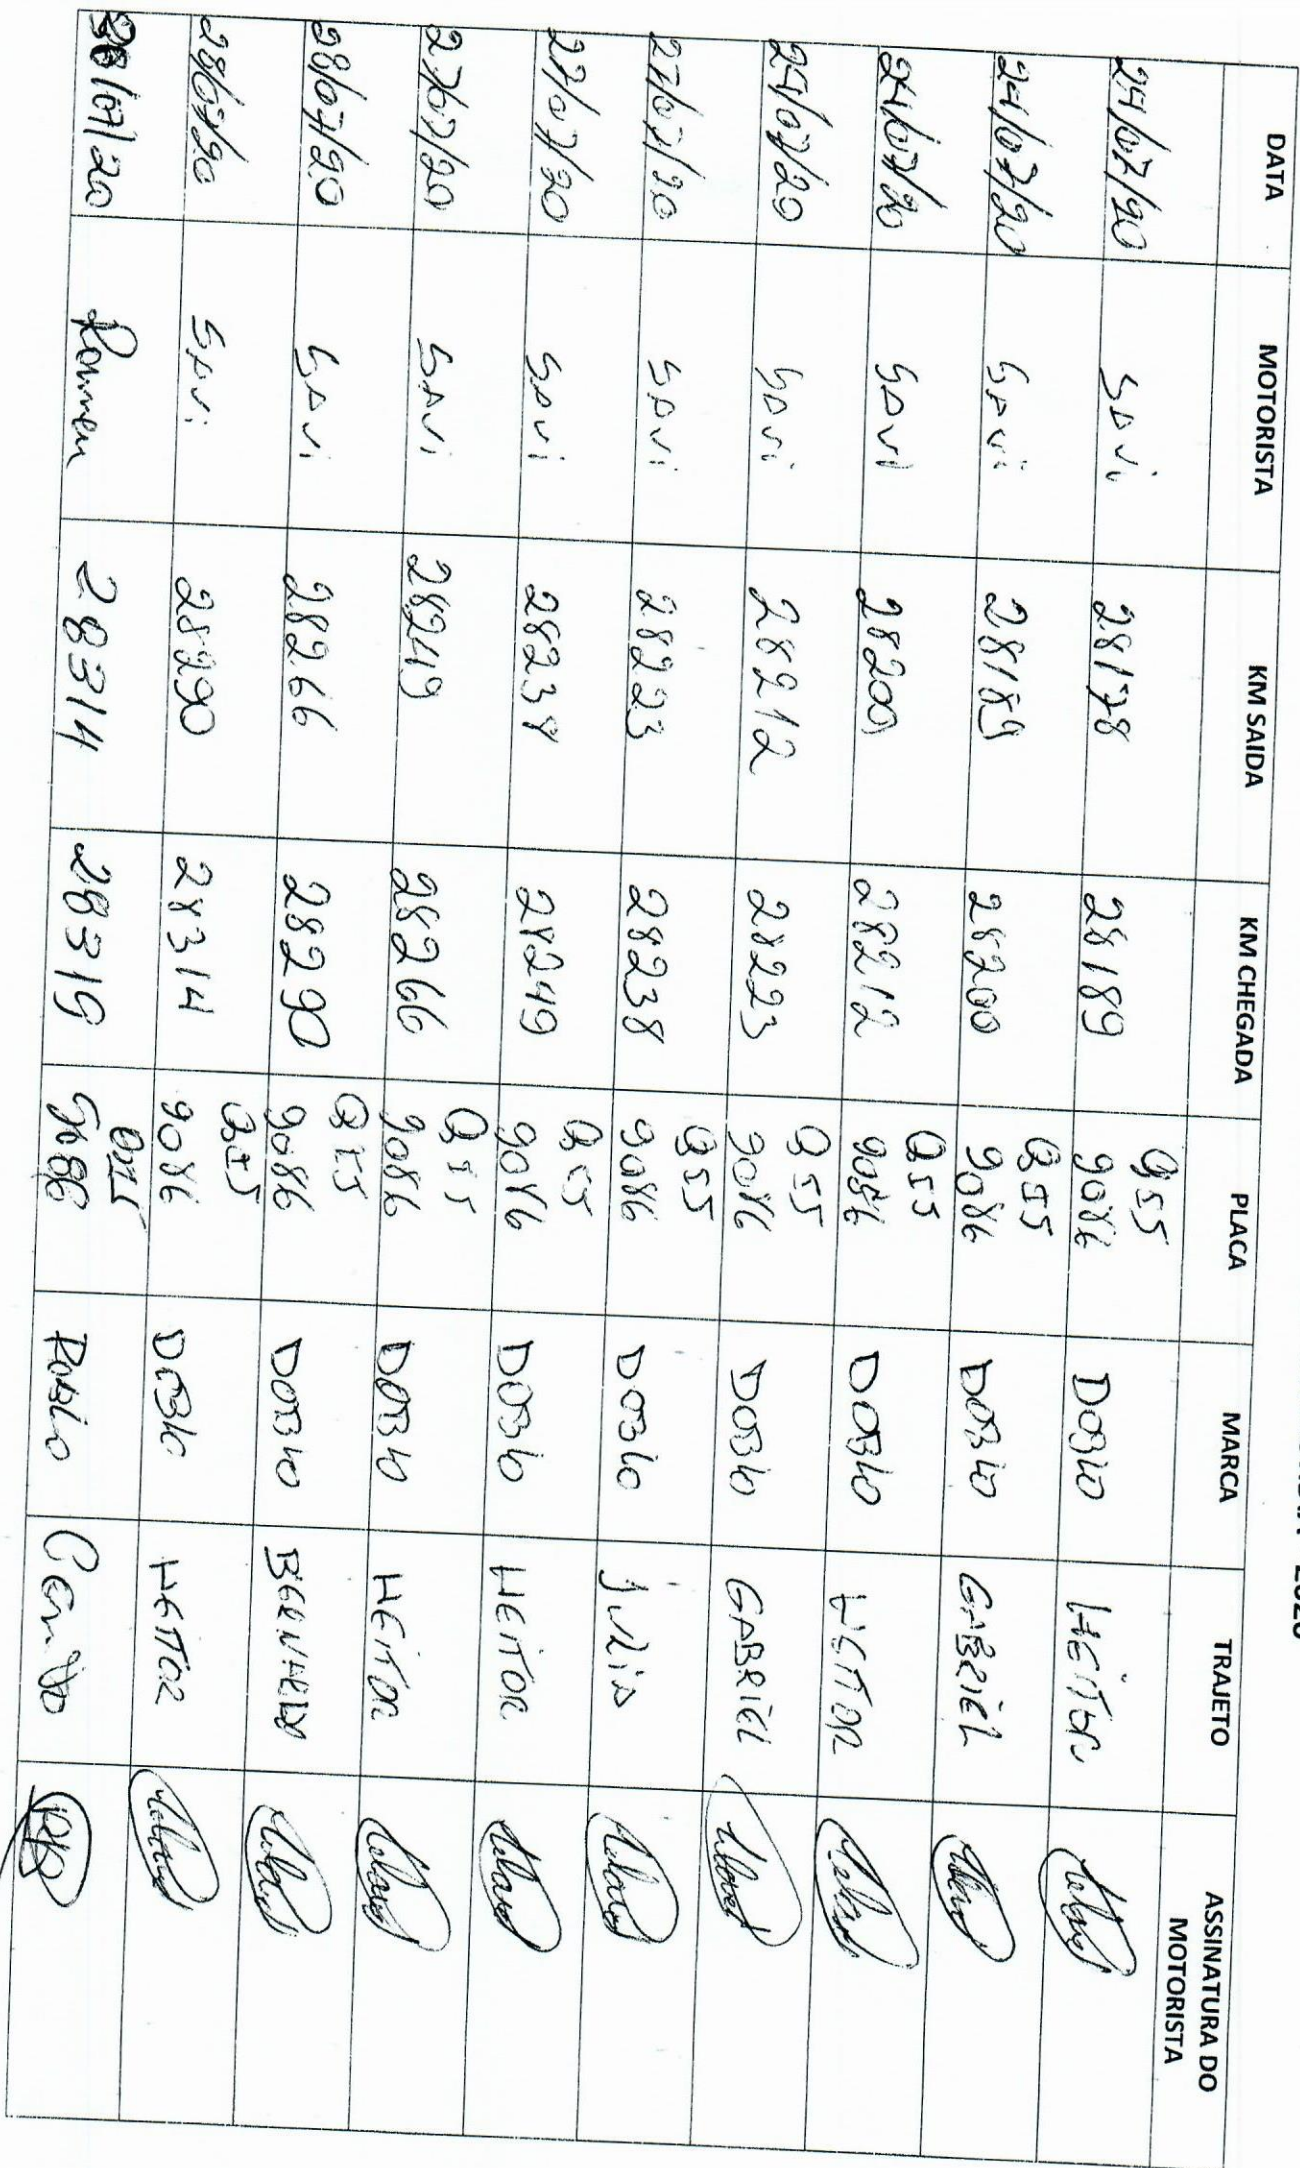 DATA MOTORISTA KM SAIDA KM CHEGADA PLACA MARCA TRAJETO ASSINATURA DO MOTORISTA
24/07/20 SAVi 28178 28189 QI5 9086 DOBLO HEITOR
24/07/20 SAVi 28189 28200 QI5 9086 DOBLO GABRIEL
24/07/20 SAVi 28200 28212 QI5 9086 DOBLO HEITOR
24/07/20 SAVi 28212 28223 QI5 9086 DOBLO GABRIEL
27/07/20 SAVi 28223 28238 QI5 9086 DOBLO JULIA
27/07/20 SAVi 28238 28249 QI5 9086 DOBLO HEITOR
27/07/20 SAVi 28249 28266 QI5 9086 DOBLO HEITOR
28/07/20 SAVi 28266 28290 QI5 9086 DOBLO
28/07/20 SAVi 28290 28314 QI5 9086 DOBLO HEITOR
/07/20 28314 28319